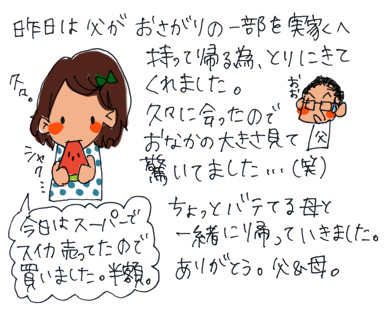 昨日は父がおさがりの一部を実家へ
持って帰る為、とりにきて
くれました。
久々に会ったので
おなかの大きさ見て
驚いてました…(笑)
おぉ
父
久々。
シャク…
今日はスーパーで
スイカ売ってたので
買いました。半額。
ちょっとバテてる母と
一緒に帰っていきました。
ありがとう。父&母。